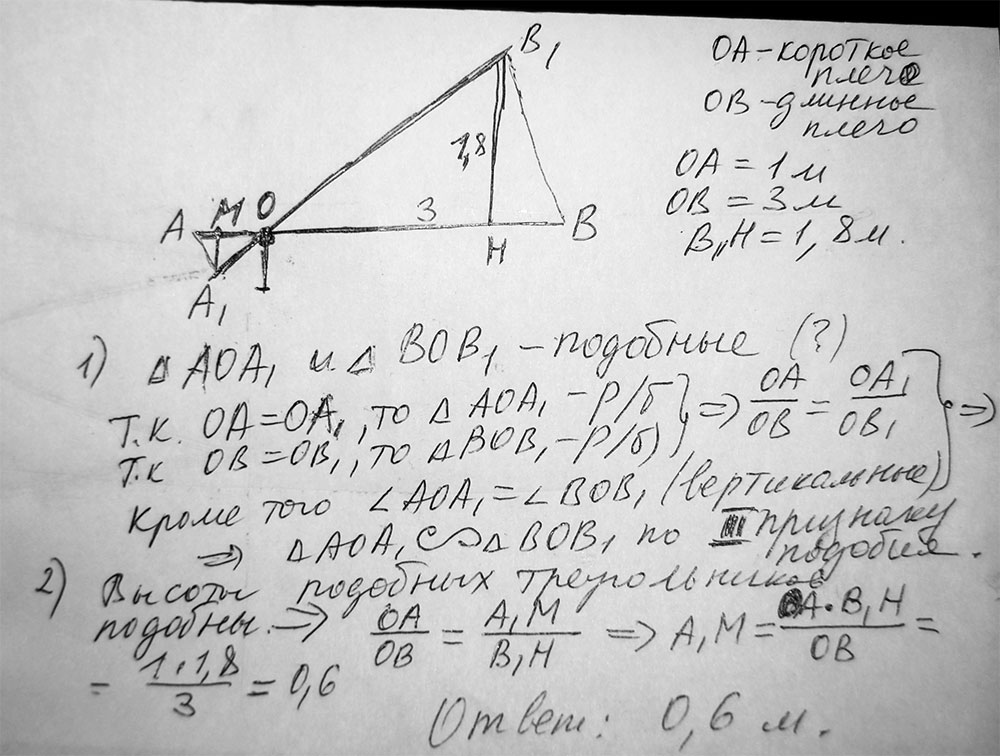 B₁
OA - короткое
плечо
OB - длинное
плечо
1,8
OA = 1 м
OB = 3 м
B₁H = 1,8 м.
A M O 3 B
H
A₁
1) △ AOA₁ и △ BOB₁ - подобные (?)
Т.к. OA = OA₁, то △ AOA₁ - р/б } => OA/OB = OA₁/OB₁ } =>
Т.к OB = OB₁, то △ BOB₁ - р/б
кроме того ∠AOA₁ = ∠BOB₁ (вертикальные)
=> △ AOA₁ ∽ △ BOB₁ по III признаку
подобия.
2) Высоты подобных треугольников
подобны. => OA/OB = A₁M/B₁H => A₁M = OA · B₁H/OB =
= 1 · 1,8/3 = 0,6
Ответ: 0,6 м.